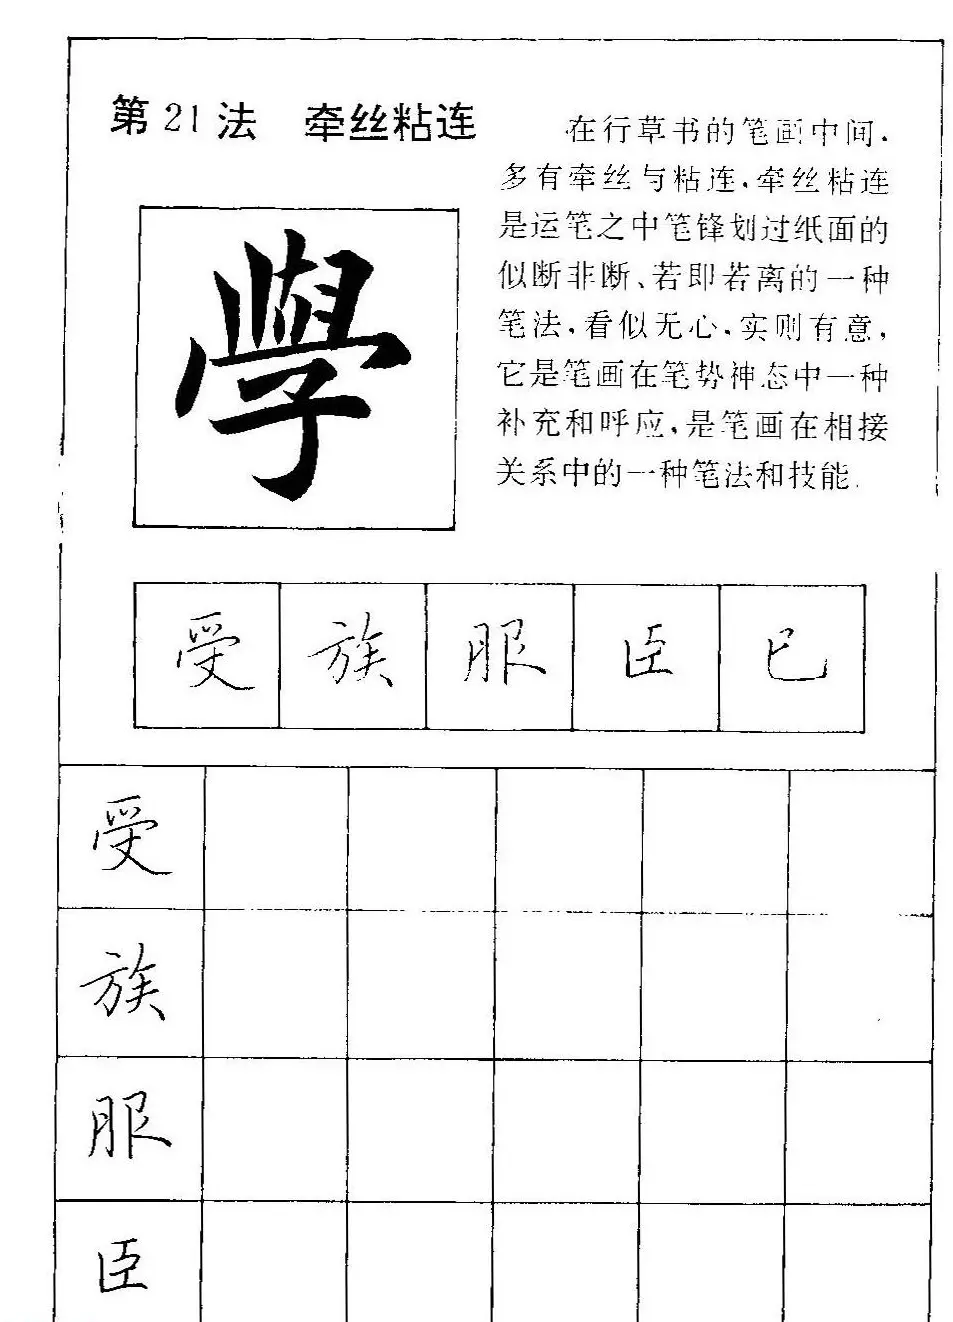 第21法 牵丝粘连
在行草书的笔画中间,
多有牵丝与粘连,牵丝粘连
是运笔之中笔锋划过纸面的
似断非断、若即若离的一种
笔法,看似无心,实则有意,
它是笔画在笔势神态中一种
补充和呼应,是笔画在相接
关系中的一种笔法和技能.
學
受 族 服 臣 已
受
族
服
臣